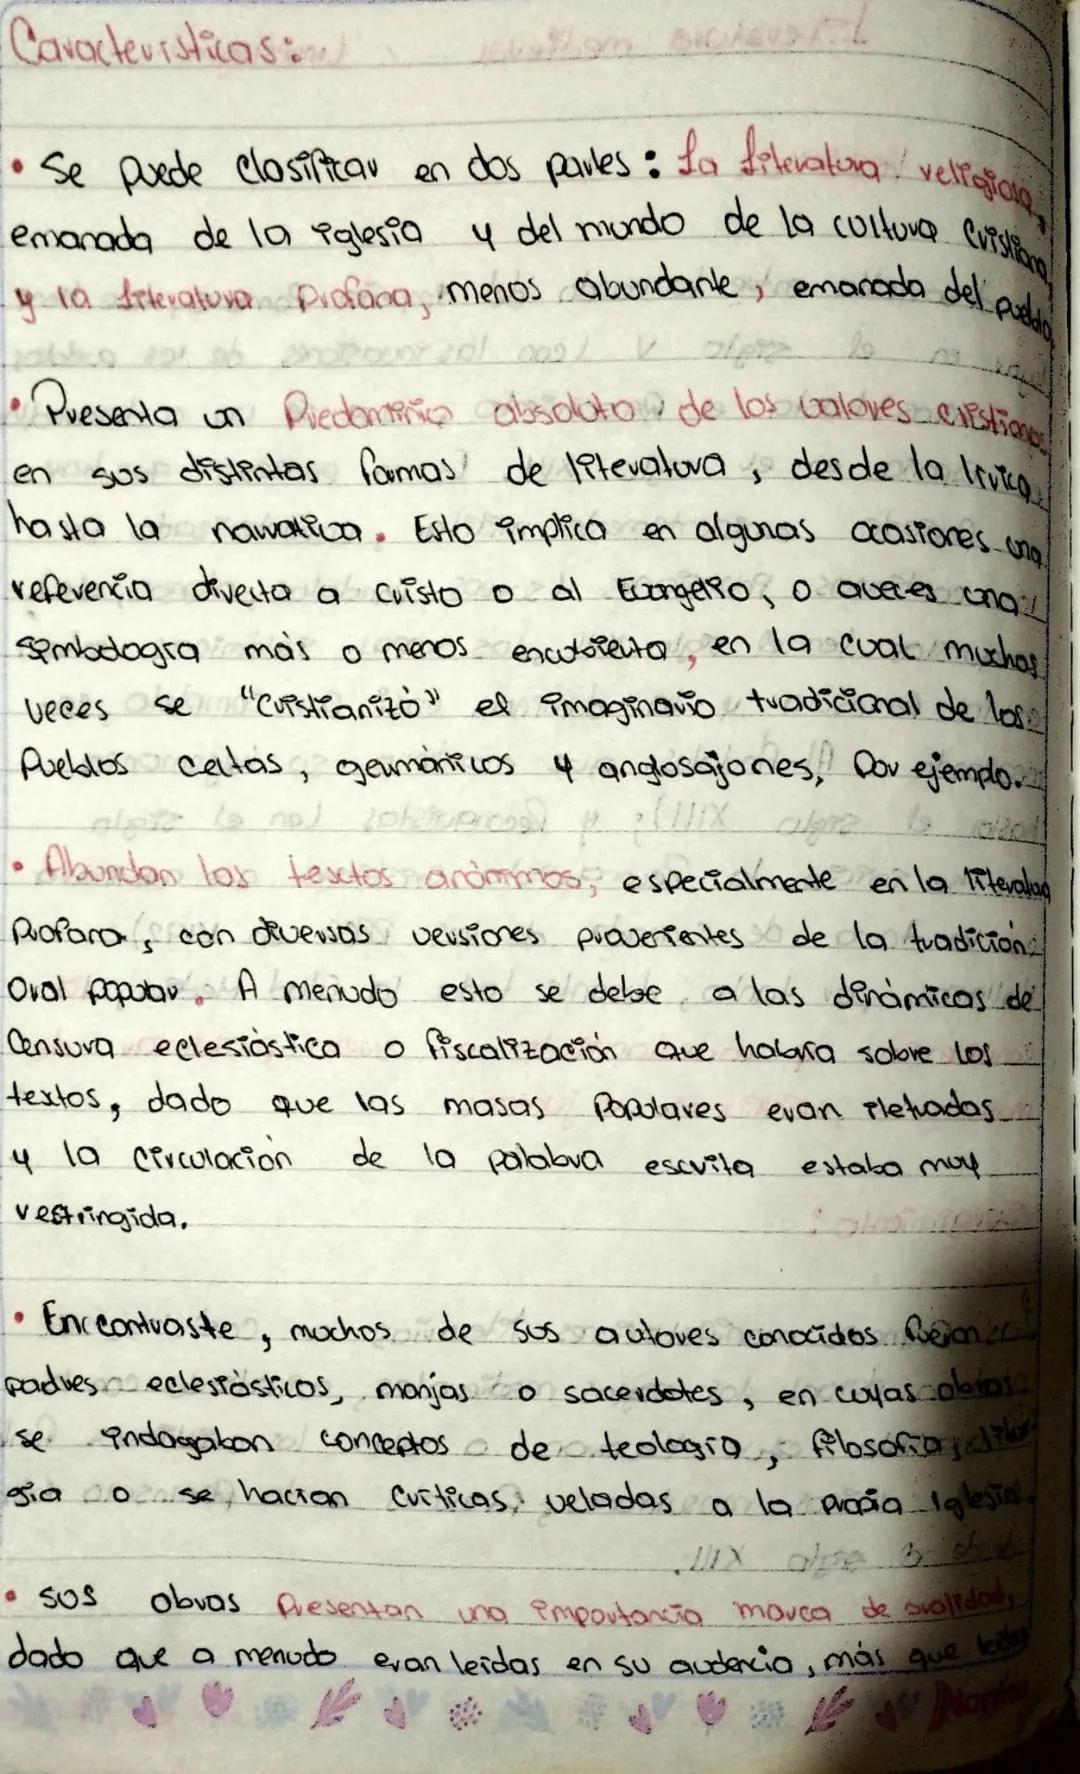 Caracteristicas:
• Se puede clasificar en dos partes: La literatura religiosa,
emanada de la iglesia y del mundo de la cultura cristiana
y la literatura profana, menos abundante, emanada del pueblo
• Presenta un Predominio absoluto de los valores cristianos
en sus distintas formas de literatura, desde la lírica
hasta la narrativa. Esto implica en algunas ocasiones una
referencia directa a cristo o al Evangelio, o aveces una
simbología más o menos encubierta, en la cual muchas
veces se "cristianizó" el imaginario tradicional de los
Pueblos celtas, germánicos y anglosajones, Por ejemplo.
• Abundan los texctos anónimos, especialmente en la literatura
Profana, con diversas versiones provenientes de la tradición
Oral popular. A menudo esto se debe a las dinámicas de
Censura eclesiástica o fiscalización que habría sobre los
textos, dado que las masas Populares eran iletradas
y la circulación de la palabra escrita estaba muy
restringida.
• En contraste, muchos de sus autores conocidos fueron
padres eclesiásticos, monjas o sacerdotes, en cuyas obras
se indagaban conceptos de teología, filosofía, litur
gia o se hacían críticas veladas a la propia Iglesia.
• sus obras Presentan una importancia marca de oralidad,
dado que a menudo eran leídas en su audencia, más que leídas
Norma